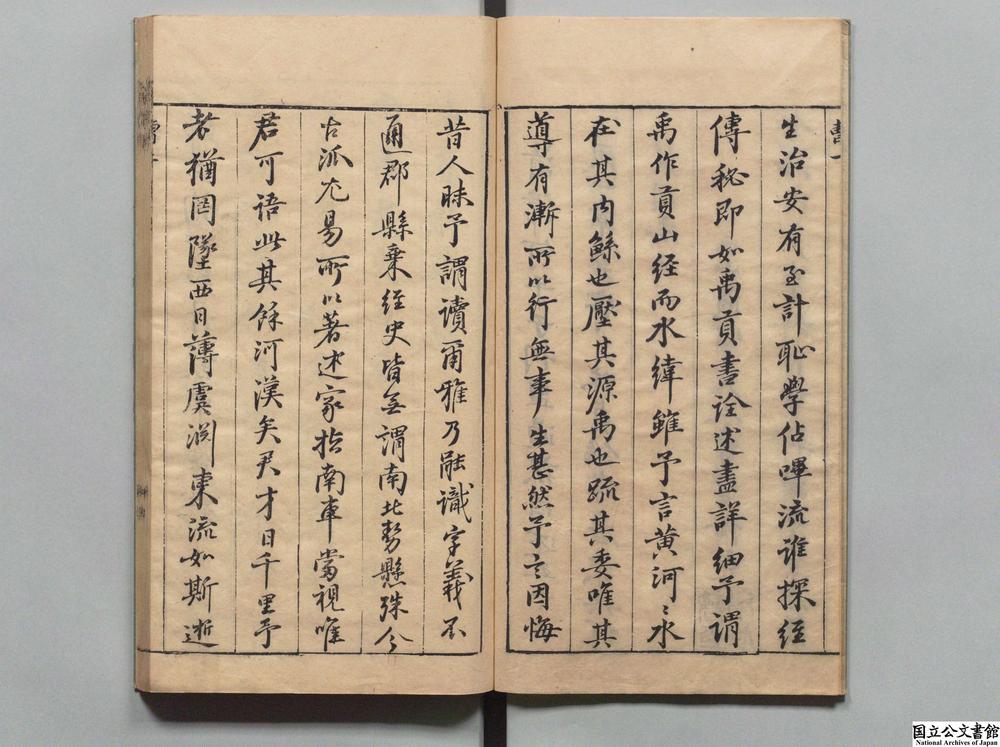 生治安有至計恥學佔嗶流誰探經
傳秘即如禹貢書詮述盡詳細予謂
禹作貢山経而水緯雖予言黄河〻水
在其内鯀也壓其源禹也疏其委唯其
導有漸所以行無事生甚然予言因悔
昔人昧予謂讀爾雅乃融識字義不
通郡縣乗経史皆無謂南北勢懸殊今
古派尤易所以著述家指南車當視唯
君可語此其餘河漢矣君才日千里予
老猶罔墜西日薄虞淵東流如斯逝
国立公文書館
National Archives of Japan